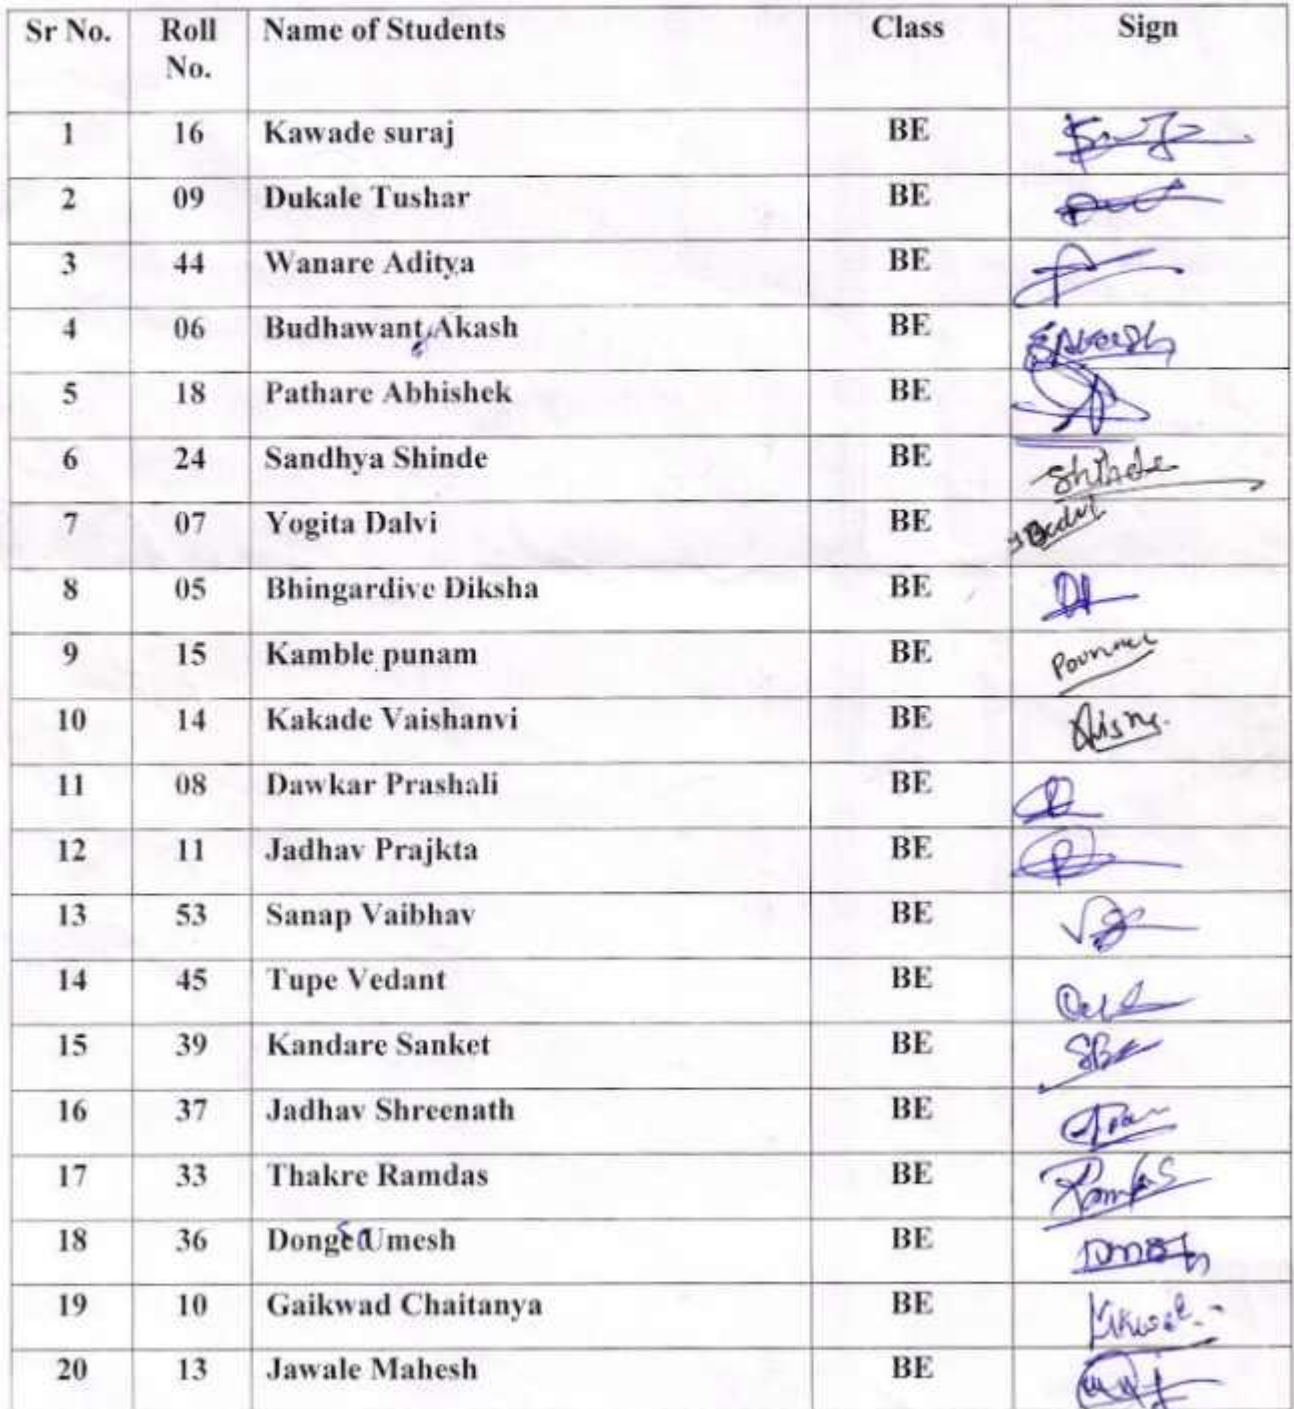 Sr No. Roll No. Name of Students Class Sign
1 16 Kawade suraj BE
2 09 Dukale Tushar BE
3 44 Wanare Aditya BE
4 06 Budhawant Akash BE
5 18 Pathare Abhishek BE
6 24 Sandhya Shinde BE Shinde
7 07 Yogita Dalvi BE
8 05 Bhingardive Diksha BE
9 15 Kamble punam BE
10 14 Kakade Vaishanvi BE
11 08 Dawkar Prashali BE
12 11 Jadhav Prajkta BE
13 53 Sanap Vaibhav BE
14 45 Tupe Vedant BE
15 39 Kandare Sanket BE
16 37 Jadhav Shreenath BE
17 33 Thakre Ramdas BE
18 36 Donge Umesh BE
19 10 Gaikwad Chaitanya BE
20 13 Jawale Mahesh BE